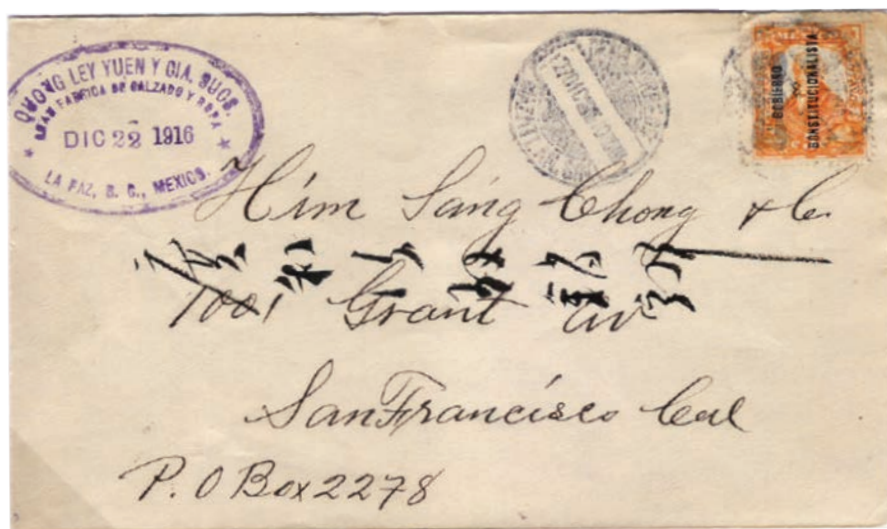 QUONG LEY YUEN Y CIA. SUCS.
GRAN FABRICA DE CALZADO Y ROPA
DIC 22 1916
LA PAZ, B. C., MEXICO.
GOBIERNO
CONSTITUCIONALISTA
Him Sang Chong & Co
1001 Grant av
San Francisco Cal
P. O Box 2278